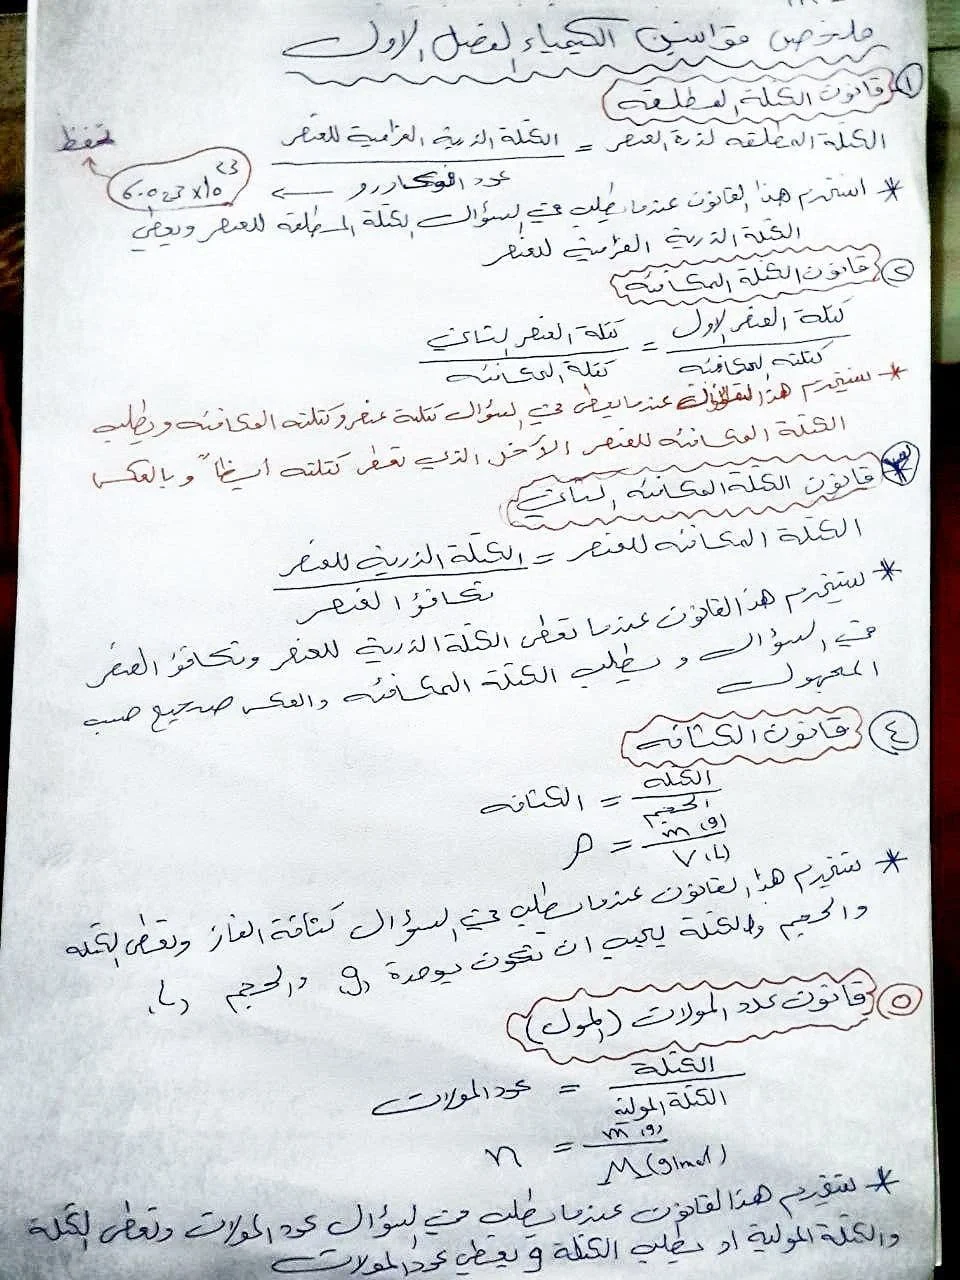 ملخص قوانين الكيمياء الفصل الاول
١ قانون الكتلة المطلقه
الكتلة المطلقه لذرة العنصر = الكتلة الذرية الغرامية للعنصر
عدد افوكادرو
6.023 x 10²³
تحفظ
* استخدم هذا القانون عندما يطلب في السؤال الكتلة المطلقة للعنصر ويعطي
الكتلة الذرية الغرامية للعنصر
٢ قانون الكتلة المكافئه
كتلة العنصر الاول = كتلة العنصر الثاني
كتلته المكافئه كتلته المكافئه
* نستخدم هذا القانون عندما يعطى في السؤال كتلة عنصر وكتلته المكافئه ويطلب
الكتلة المكافئه للعنصر الآخر الذي تعطى كتلته أيظاً وبالعكس
٣ قانون الكتلة المكافئه الثاني
الكتلة المكافئه للعنصر = الكتلة الذرية للعنصر
تكافؤ العنصر
* نستخدم هذا القانون عندما تعطى الكتلة الذرية للعنصر وتكافؤ العنصر
في السؤال ويطلب الكتلة المكافئه والعكس صحيح حسب
المجهول
٤ قانون الكثافه
الكثافه = الكتله
الحجم
ρ = m (g)
V (L)
* نستخدم هذا القانون عندما يطلب في السؤال كثافة الغاز وتعطى الكتله
والحجم والكتلة يجب ان تكون بوحدة (g) والحجم (L)
٥ قانون عدد المولات (المول)
عدد المولات = الكتلة
الكتلة المولية
n = m (g)
M (g/mol)
* نستخدم هذا القانون عندما يطلب في السؤال عدد المولات وتعطى الكتلة
والكتلة المولية او يطلب الكتلة و يعطي عدد المولات